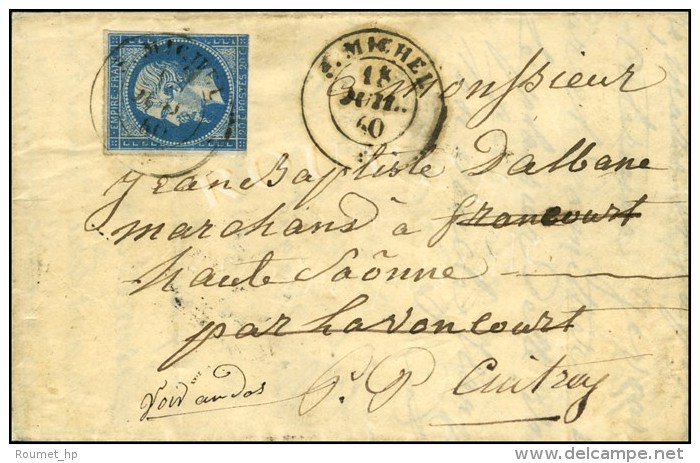 EMPIRE FRANC
POSTES
20 C
S. MICHEL
18
JUIL.
60
Monssieur
Jean Baptiste Dalbane
marchand à francourt
haute Saônne
par Lavoncourt
P. P Cintrey
Voir au dos
Roumet_hp
©www.delcampe.net